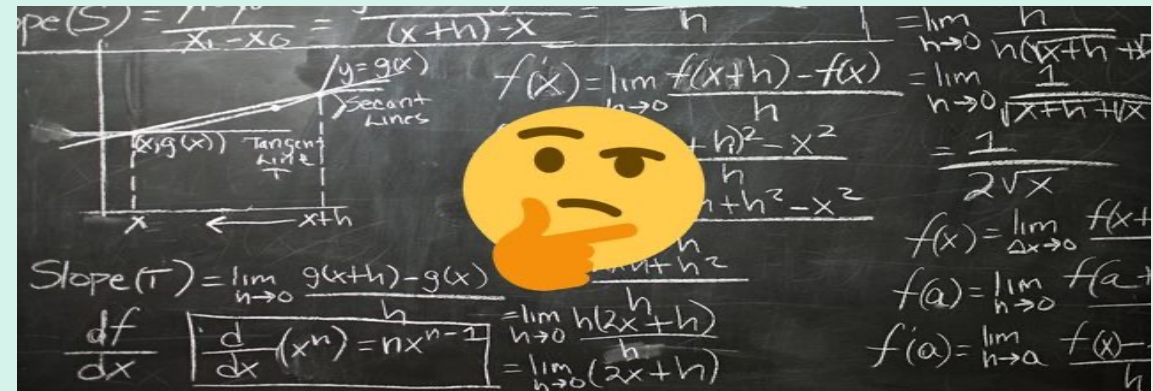 pe(S) = = =
x₁-x₀ (x+h)-x h
y=g(x)
Secant
Lines
(x,g(x))
Tangent
Line
T
x ← x+h
Slope(T) = lim h→0 g(x+h)-g(x)
h
df
dx
d/dx (xⁿ) = nxⁿ⁻¹
f'(x) = lim h→0 f(x+h)-f(x)
h
h)²-x²
h
+h²-x²
h
h²
h
= lim h→0 h(2x+h)
h
= lim h→0 (2x+h)
= lim h→0 h
h(√x+h +√
= lim h→0 1
√x+h +√x
= 1
2√x
f(x) = lim Δx→0 f(x+
f(a) = lim h→0 f(a+
f'(a) = lim h→a f(x)-
h